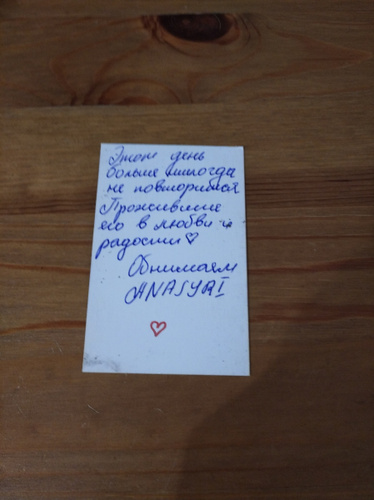 Этот день
больше никогда
не повторится
Проживите
его в любви и
радости♡
Обнимаем
ANASYAI